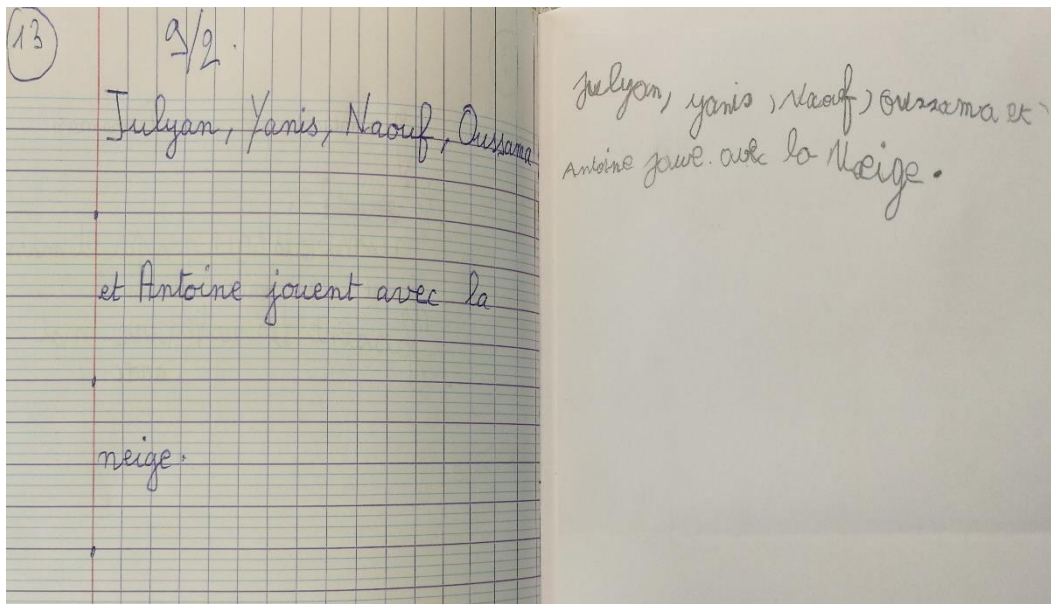 13
9/2.
Julyan, Yanis, Naouf, Oussama
et Antoine jouent avec la
neige.
Julyan, yanis, Naouf, Oussama et
Antoine joue. avec la Neige.